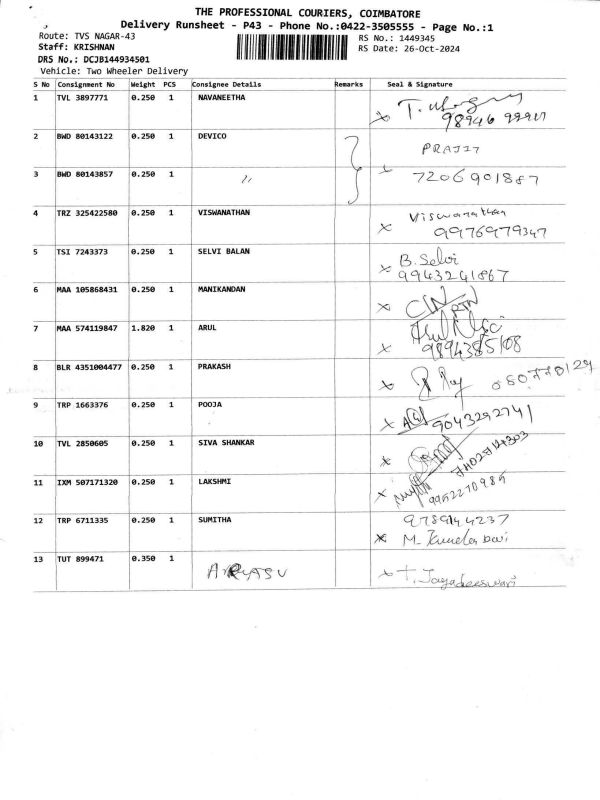 THE PROFESSIONAL COURIERS, COIMBATORE
Delivery Runsheet - P43 - Phone No.:0422-3505555 - Page No.:1
Route: TVS NAGAR-43 RS No.: 1449345
Staff: KRISHNAN RS Date: 26-Oct-2024
DRS No.: DCJB144934501
Vehicle: Two Wheeler Delivery
S No Consignment No Weight PCS Consignee Details Remarks Seal & Signature
1 TVL 3897771 0.250 1 NAVANEETHA
x T.
98946
2 BWD 80143122 0.250 1 DEVICO PRAJIT
3 BWD 80143857 0.250 1 〃 x 7206901887
4 TRZ 325422580 0.250 1 VISWANATHAN Viswanathan
x 9976979347
5 TSI 7243373 0.250 1 SELVI BALAN B. Selvi
x 9943241867
6 MAA 105868431 0.250 1 MANIKANDAN x
7 MAA 574119847 1.820 1 ARUL
x 9894385108
8 BLR 4351004477 0.250 1 PRAKASH x
9 TRP 1663376 0.250 1 POOJA x 9043292741
10 TVL 2850605 0.250 1 SIVA SHANKAR x
11 IXM 507171320 0.250 1 LAKSHMI x 9952270985
12 TRP 6711335 0.250 1 SUMITHA 9789144237
x M.
13 TUT 899471 0.350 1 x T. Jayadeeswari